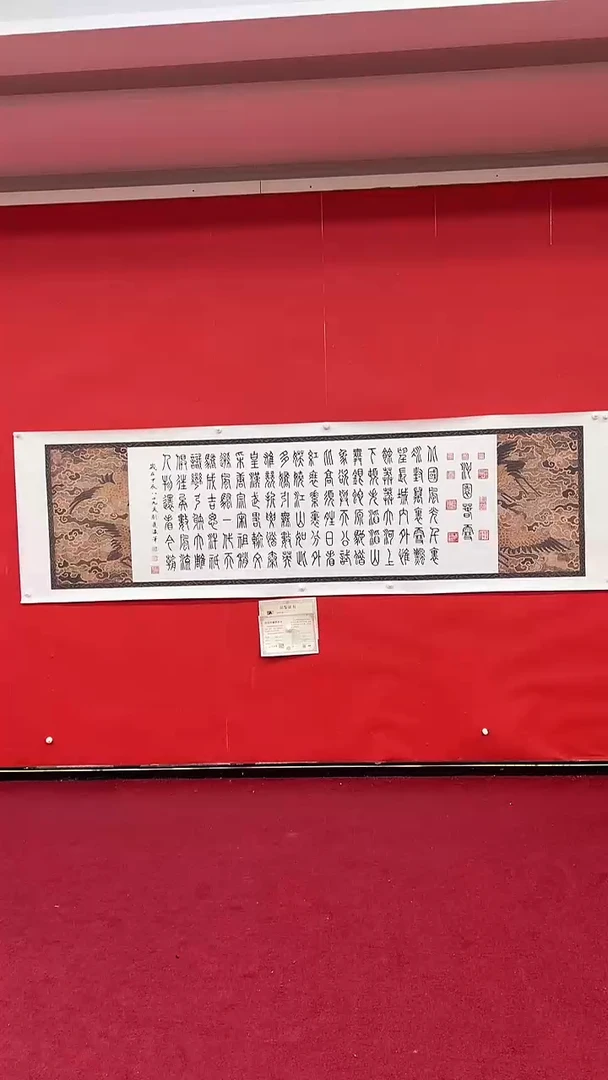 沁園春雪
北國風光千里
冰封萬里雪飄
望長城內外惟
餘莽莽大河上
下頓失滔滔山
舞銀蛇原馳蠟
象欲與天公試
比高須晴日看
紅裝素裹分外
妖嬈江山如此
多嬌引無數英
雄競折腰惜秦
皇漢武略輸文
采唐宗宋祖稍
遜風騷一代天
驕成吉思汗祇
識彎弓射大雕
俱往矣數風流
人物還看今朝